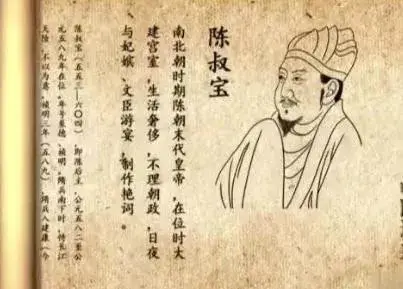 陈叔宝
南北朝时期陈朝末代皇帝，在位时大
建宫室，生活奢侈，不理朝政，日夜
与妃嫔、文臣游宴，制作艳词。
陈叔宝（五五三—六〇四） 即陈后主，公元五八二至公
元五八九年在位，年号至德、祯明，隋兵南下时，恃长江
天险，不以为意，祯明三年（五八九），隋兵入建康（今